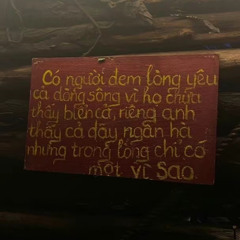 Có người đem lòng yêu
cả dòng sông vì họ chưa
thấy biển cả, riêng anh
thấy cả dãy ngân hà
nhưng trong lòng chỉ có
một vì sao